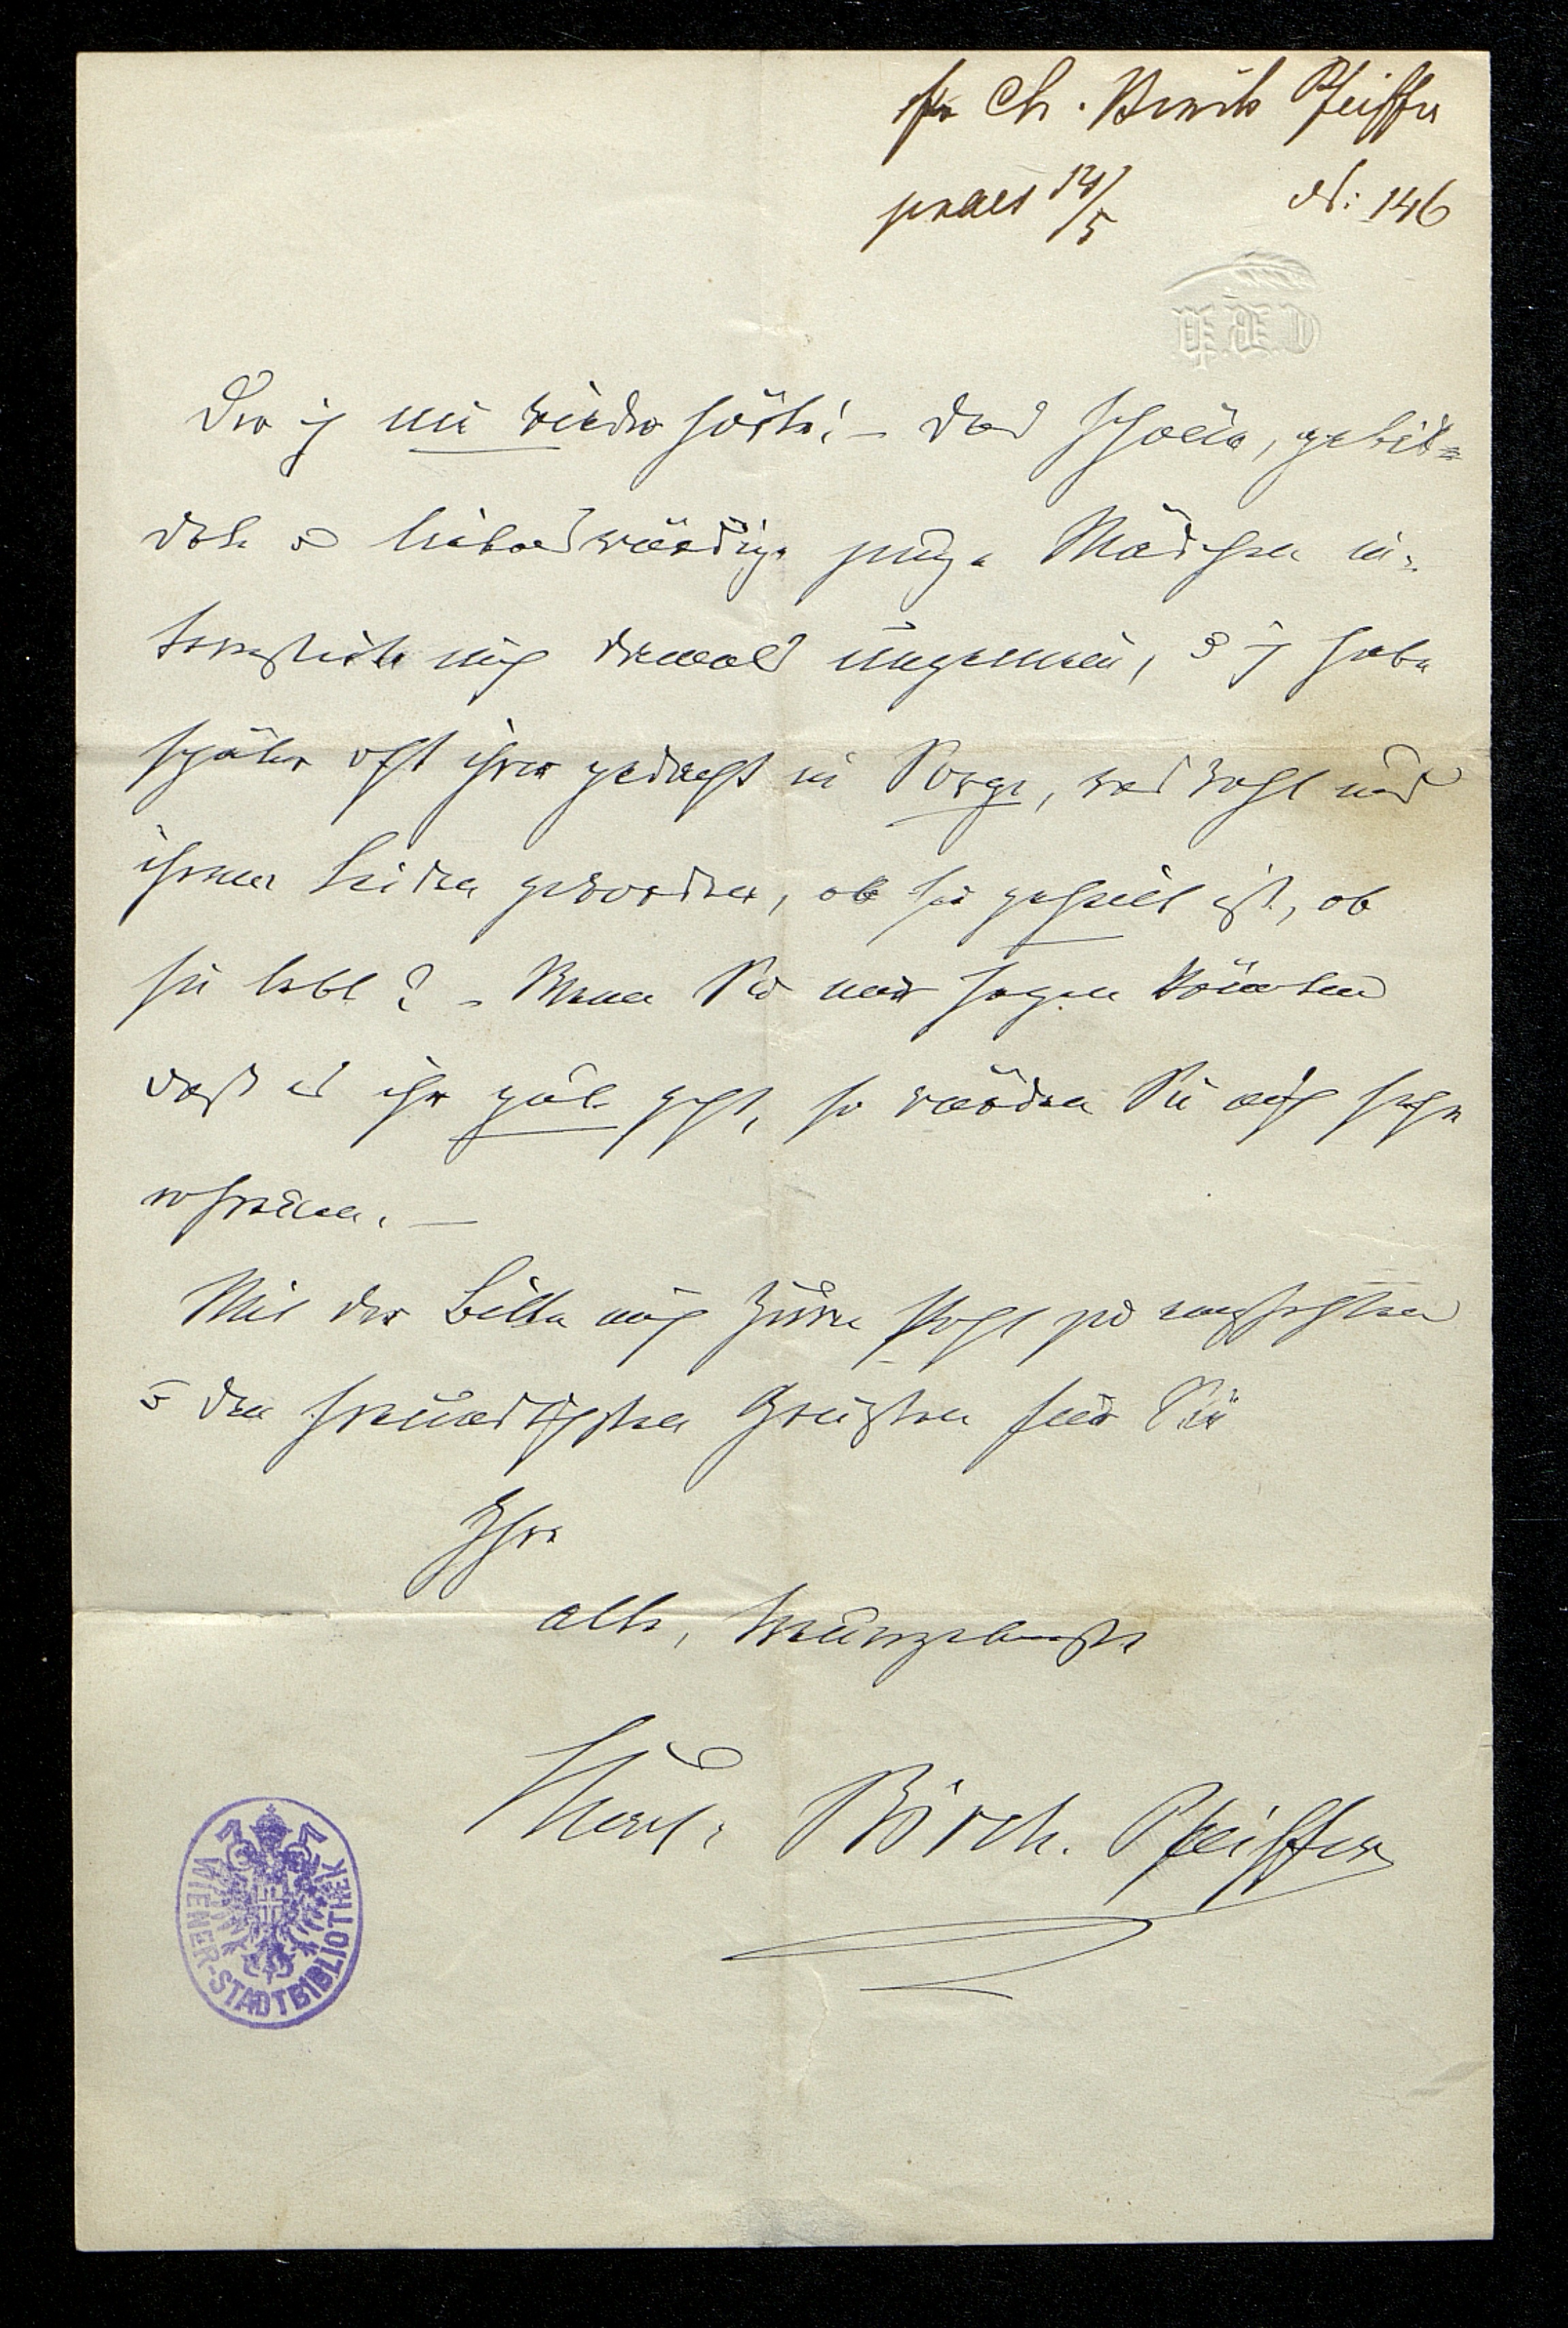 Fr Ch. Birch Pfeiffer
praes 14/5 N: 146
C.B.P.
Der ich nie wieder hörte! – Das schöne, gebil=
dete u liebenswürdige junge Mädchen in=
teressirte mich damals ungemein, u ich habe
später oft ihrer gedacht in Sorge, was wohl aus
ihrem Leiden geworden, ob sie geheilt ist, ob
sie lebt? – Wenn Sie mir sagen könnten
daß es ihr gut geht, so würden Sie mich sehr
erfreuen. –
Mit der Bitte mich Ihrem zu empfehlen
u den freundlichsten Grüßen für Sie
Ihre
alte, treuergebenste
Charl. Birch. Pfeiffer
WIENER-STADTBIBLIOTHEK